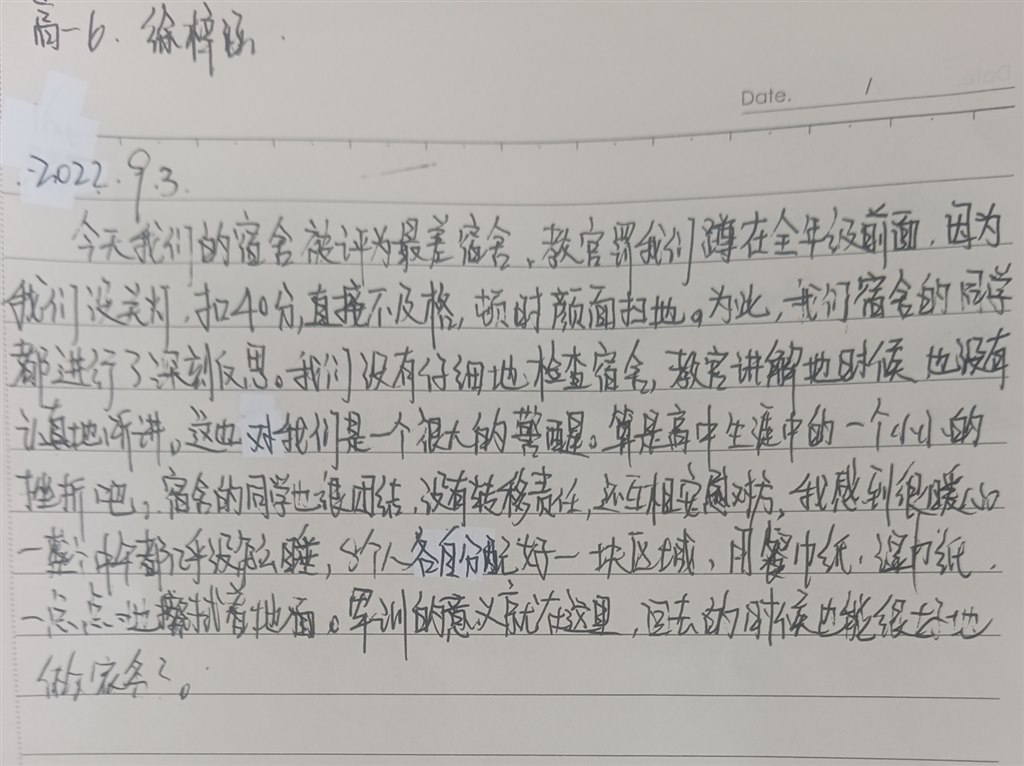 高一6. 徐梓涵.
Date. /
2022.9.3.
今天我们的宿舍被评为最差宿舍,教官罚我们蹲在全年级前面,因为
我们没关灯,扣40分,直接不及格,顿时颜面扫地。为此,我们宿舍的同学
都进行了深刻反思。我们没有仔细地检查宿舍,教官讲解地时候也没有
认真地听讲。这也对我们是一个很大的警醒。算是高中生涯中的一个小小的
挫折吧,宿舍的同学也很团结,没有转移责任,还互相安慰对方,我感到很暖心
一整个中午都几乎没怎么睡,8个人各自分配好一块区域,用餐巾纸,湿巾纸,
一点点地擦拭着地面。军训的意义就在这里,回去的时候也能很好地
做家务了。